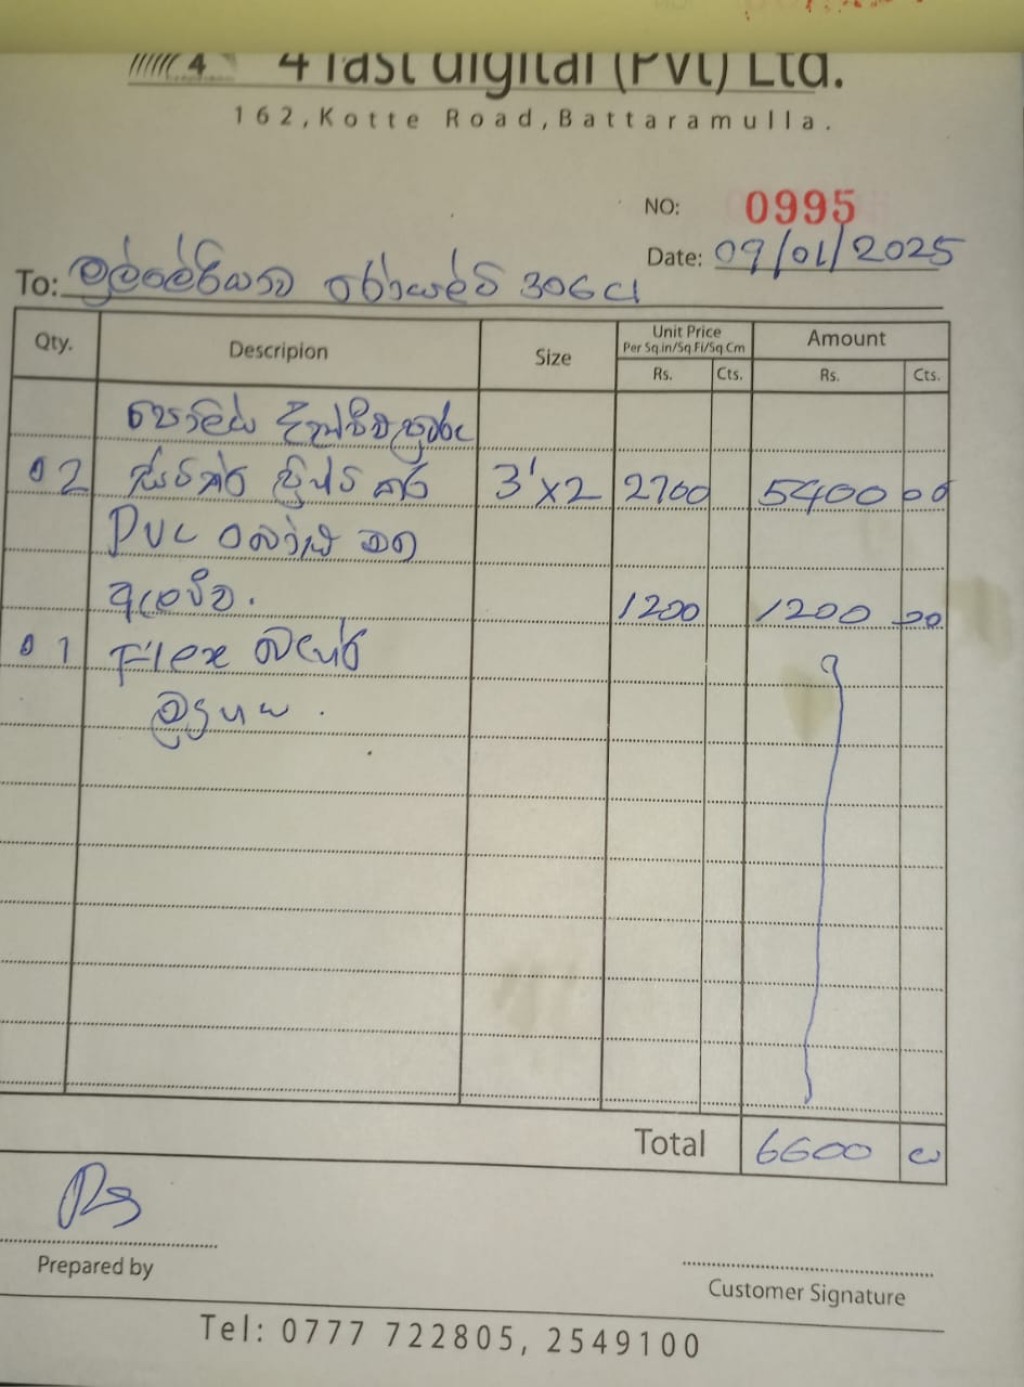 4 fast digital (Pvt) Ltd.
162,Kotte Road,Battaramulla.
NO: 0995
Date: 09/01/2025
To: මුල්ලේරියාව 306C1
Qty. Descripion Size Unit Price Per Sq.in/Sq.Fi/Sq.Cm Amount
Rs. Cts. Rs. Cts.
පොලිස්
02 ස්ටිකර් ප්‍රින්ට් කර 3'x2 2700 5400 00
PVC
ඇලවීම. 1200 1200 00
01 Flex බැනර්
මුද්‍රණය.
Total 6600
Prepared by
Customer Signature
Tel: 0777 722805, 2549100